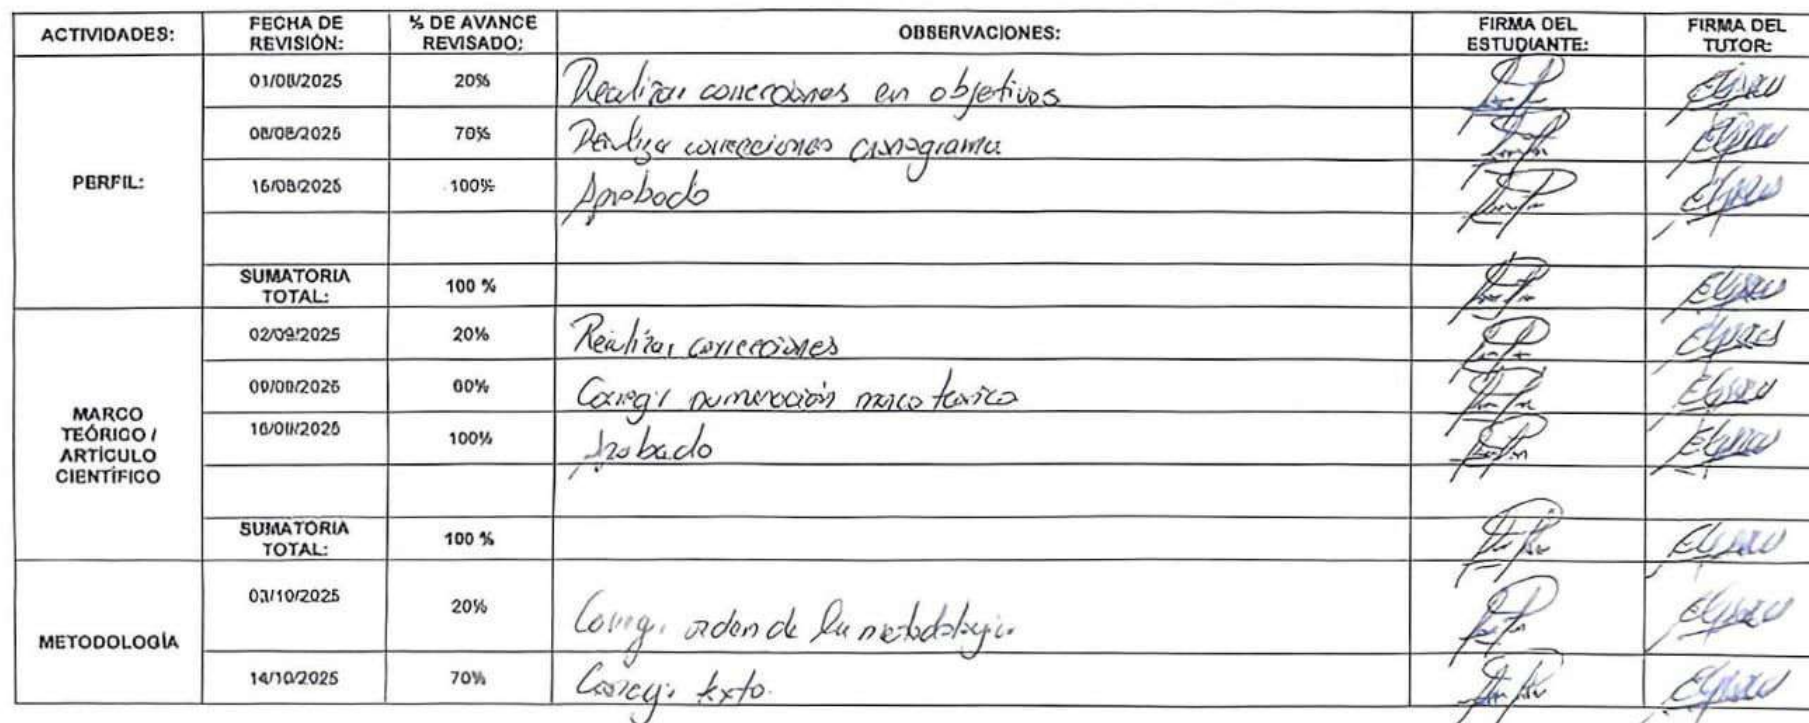 ACTIVIDADES: FECHA DE REVISIÓN: % DE AVANCE REVISADO: OBSERVACIONES: FIRMA DEL ESTUDIANTE: FIRMA DEL TUTOR:
PERFIL:
01/08/2025 20% Realizar correcciones en objetivos
08/08/2025 70% Realizar correcciones cronograma
15/08/2025 100% Aprobado
SUMATORIA TOTAL: 100 %
MARCO TEÓRICO / ARTÍCULO CIENTÍFICO
02/09/2025 20% Realizar correcciones
09/09/2025 60% Corregir numeración marco teorico
100% Aprobado
SUMATORIA TOTAL: 100 %
METODOLOGÍA
03/10/2025 20% Corregir orden de la metodología
14/10/2025 70% Corregir texto.